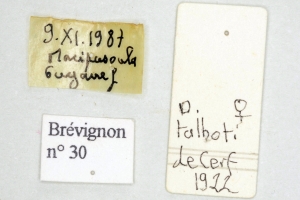 9.XI.1987
Maripasoula
Guyane f
Brévignon
n° 30
D. ♀
talboti
de Cerf
1922